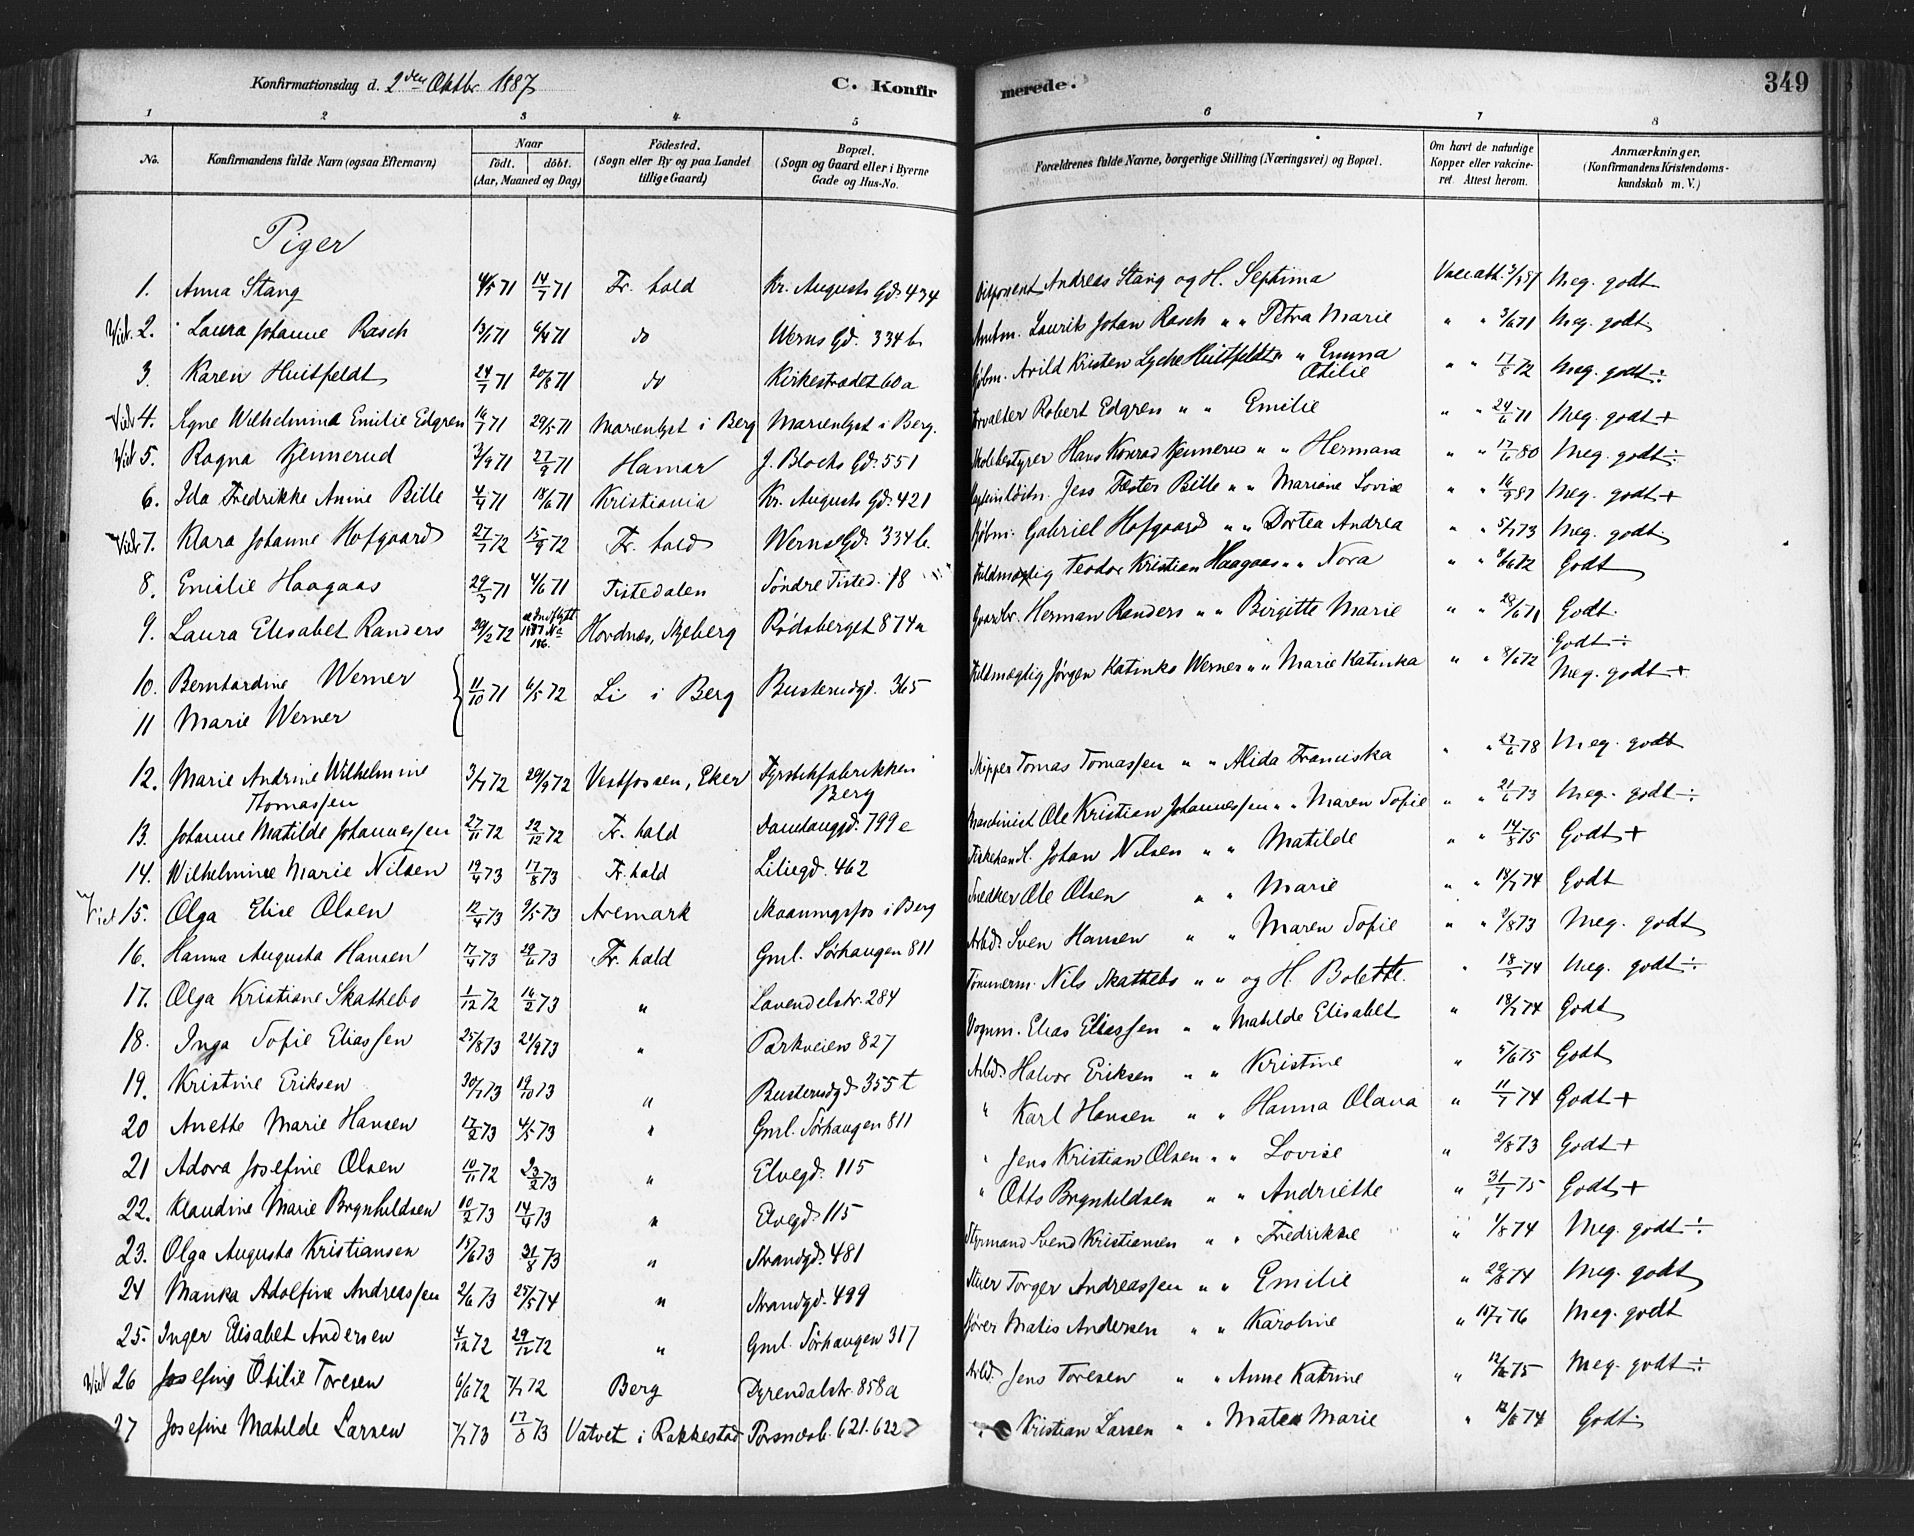 Konfirmationsdag d. 2den Oktbr. 1887
C. Konfirmerede.
349
1 2 3 4 5 6 7 8
No. | Konfirmandens fulde Navn (ogsaa Efternavn) | Naar födt. döbt. (Aar, Maaned og Dag) | Födested. (Sogn eller By og paa Landet tillige Gaard) | Bopæl. (Sogn og Gaard eller i Byerne Gade og Hus-No. | Forældrenes fulde Navne, borgerlige Stilling (Næringsvei) og Bopæl. | Om havt de naturlige Kopper eller vakcineret. Attest herom. | Anmærkninger. (Konfirmandens Kristendomskundskab m. V.)
Piger
1. Anna Stang | 4/5 71 | 14/7 71 | Fr. hald | Kr. Augusts Gd. 434 | Disponent Andreas Stang og H. Septima | Vacc. att. 3/5 87 | Meg. godt
Viet. 2. Laura Johanne Rasch | 13/1 71 | 6/4 71 | do | Werns Gd. 334 b | Amtm. Laurits Johan Rasch " " Petra Marie | " " 3/6 71 | Meg. godt
3. Karen Huitfeldt | 24/7 71 | 20/8 71 | do | Kirkestrædet 60a | Kjøbm. Arild Kristen Lyche Huitfeldt " " Emma Otilie | " " 17/8 72 | Meg. godt ÷
Viet 4. Signe Wilhelmina Emilie Edgren | 14/7 71 | 29/5 71 | Marienlyst i Berg | Marienlyst i Berg. | Forvalter Robert Edgren " " Emilie | " " 24/6 71 | Meg. godt +
Viet 5. Ragna Kjennerud | 3/9 71 | 27/9 71 | Hamar | J. Blochs Gd. 551 | Skolebestyrer Hans Konrad Kjennerud " " Hermana | " " 17/6 80 | Meg. godt ÷
6. Ida Fredrikke Anine Bille | 4/4 71 | 18/6 71 | Kristiania | Kr. Augusts Gd. 421 | Jess Fester Bille " " Mariane Lovise | " " 16/9 87 | Meg. godt +
Viet 7. Klara Johanne Hofgaard | 27/7 72 | 15/9 72 | Fr. hald | Werns Gd. 334 b. | Kjøbm. Gabriel Hofgaard " " Dortea Andrea | " " 5/7 73 | Meg. godt
8. Emilie Haagaas | 29/3 71 | 4/6 71 | Tistedalen | Søndre Tisted. 18 | Fuldmægtig Teodor Kristian Haagaas " " Nora | " " 8/6 72 | Godt
9. Laura Elisabet Randers | 29/2 72 | 1887 No 186. | Hordnæs, Skjeberg | Rödsberget 874a | Herman Randers " " Birgitte Marie | " " 28/6 71 | Godt
10. Bernhardine Werner | 11/10 71 | 6/5 72 | Li i Berg | Busterudgd. 365 | Fuldmægtig Jørgen Katinka Werner " " Marie Katinka | " " 8/6 72 | Godt ÷
11 Marie Werner | Meg. godt +
12. Marie Andrine Wilhelmine Thomassen | 3/7 72 | 29/9 72 | Vestfossen, Eker | Fyrstikfabrikken Berg | Skipper Tomas Tomassen " " Alida Franciska | " " 27/6 78 | Meg. godt
13. Johanne Matilde Johannessen | 27/11 72 | 22/12 72 | Fr. hald | Damhaugd. 799 e | Maschinist Ole Kristian Johannessen " " Maren Sofie | " " 21/6 73 | Meg. godt ÷
14. Wilhelmine Marie Nilsen | 19/4 73 | 17/8 73 | Fr. hald | Liliegd. 462 | Fiskehandl. Johan Nilsen " " Matilde | " " 14/8 75 | Godt +
Viet 15. Olga Elise Olsen | 12/4 73 | 9/5 73 | Aremark | Skaaningsfos i Berg | Snedker Ole Olsen " " Marie | " " 18/7 74 | Godt
16. Hanna Augusta Hansen | 17/4 73 | 29/6 73 | Fr. hald | Gml. Sørhaugen 811 | Arbd. Sven Hansen " " Maren Sofie | " " 2/8 73 | Meg. godt
17. Olga Kristiane Skattebo | 1/12 72 | 16/2 73 | " | Lavendelstr. 284 | Tömmerm. Nils Skattebo " " og H. Bolette. | " 18/7 74 | Meg. godt ÷
18. Inga Sofie Eliassen | 25/8 73 | 21/9 73 | " | Parkveien 827 | Vognm. Elias Eliassen " " Matilde Elisabet | " 18/7 74 | Godt
19. Kristine Eriksen | 30/7 73 | 19/10 73 | " | Busterudgd. 355 t | Arbd. Halvor Eriksen " " Kristine | " 5/6 75 | Godt
20 Anette Marie Hansen | 17/2 73 | 4/5 73 | " | Gml. Sørhaugen 811 | " Karl Hansen " " Hanna Olava | " 11/7 74 | Godt +
21 Adora Josefine Olsen | 10/11 72 | 23/2 73 | " | Elvegd. 115 | " Jens Kristian Olsen " " Lovise | " 2/8 73 | Godt +
22. Klaudine Marie Brynhildsen | 10/2 73 | 14/4 73 | " | Elvegd. 115 | " Otto Brynhildsen " " Andriette | " 31/7 75 | Godt +
23. Olga Augusta Kristiansen | 15/6 73 | 31/8 73 | " | Strandgd. 481 | Styrmand Svend Kristiansen " " Fredrikke | " 1/8 74 | Meg. godt ÷
24 Manka Adolfine Andreassen | 2/6 73 | 25/5 74 | " | Strandgd. 499 | Stuer Torger Andreassen " " Emilie | " 29/8 74 | Meg. godt
25. Inger Elisabet Andersen | 4/12 72 | 29/12 72 | " | Gml. Sørhaugen 317 | Matis Andersen " " Karoline | " 15/7 76 | Meg. godt
Viet 26 Josefine Otilie Toresen | 6/6 72 | 7/7 72 | Berg | Dyrendalstr. 858a | Arbd. Jens Toresen " " Anne Katrine | " 12/6 75 | Meg. godt ÷
27 Josefine Matilde Larsen | 7/7 73 | 17/8 73 | Vatvet i Rakkestad | 621.622 | Kristian Larsen " " Matea Marie | " 12/6 74 | Godt